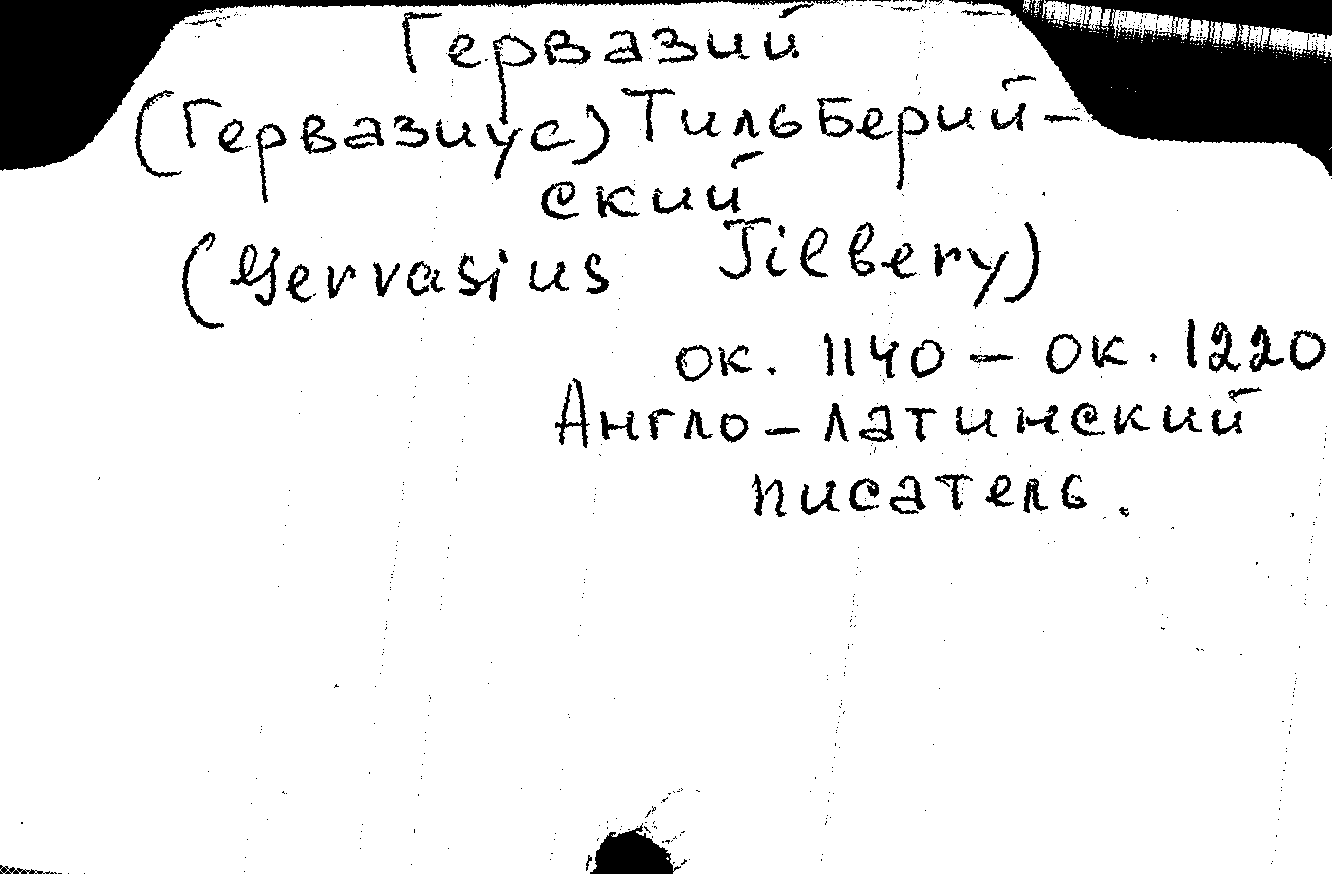 Гервазий
(Гервазиус) Тильберий-
ский
(Gervasius Tilbery)
ок. 1140 – ок. 1220
Англо-латинский
писатель.